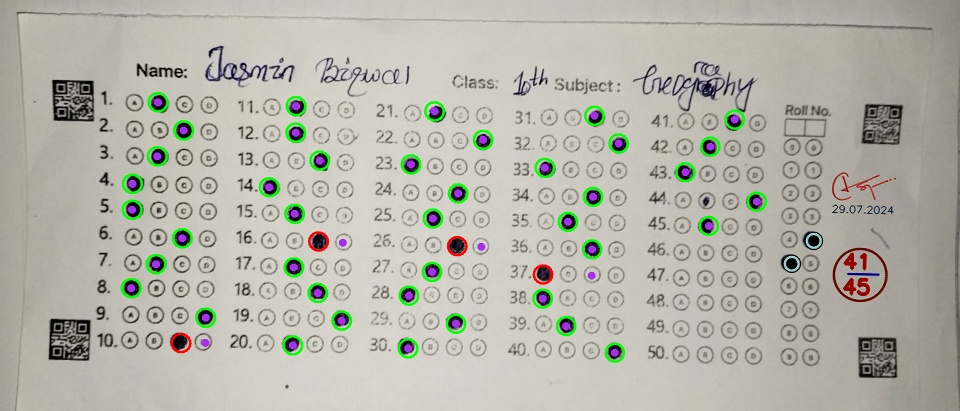 Name: Jasmin Class: 10th Subject: Geography
Roll No.
1. A C D
2. A B D
3. A C D
4. B C D
5. B C D
6. A B D
7. A C D
8. B C D
9. A B C
10. A B
11. A C D
12. A C D
13. A B D
14. B C D
15. A C D
16. A B
17. A C D
18. A B D
19. A B C
20. A C D
21. A C D
22. A B C
23. B C D
24. A B D
25. A C D
26. A B
27. A C D
28. B C D
29. A B D
30. B C D
31. A B D
32. A B C
33. B C D
34. A B D
35. A C D
36. A B D
37. C D
38. B C D
39. A C D
40. A B C
41. A B D
42. A C D
43. B C D
44. A C
45. A C D
46. A B C D
47. A B C D
48. A B C D
49. A B C D
50. A B C D
0 0
1 1
2 2
3 3
4
5
6 6
7 7
8 8
9 9
29.07.2024
41
45